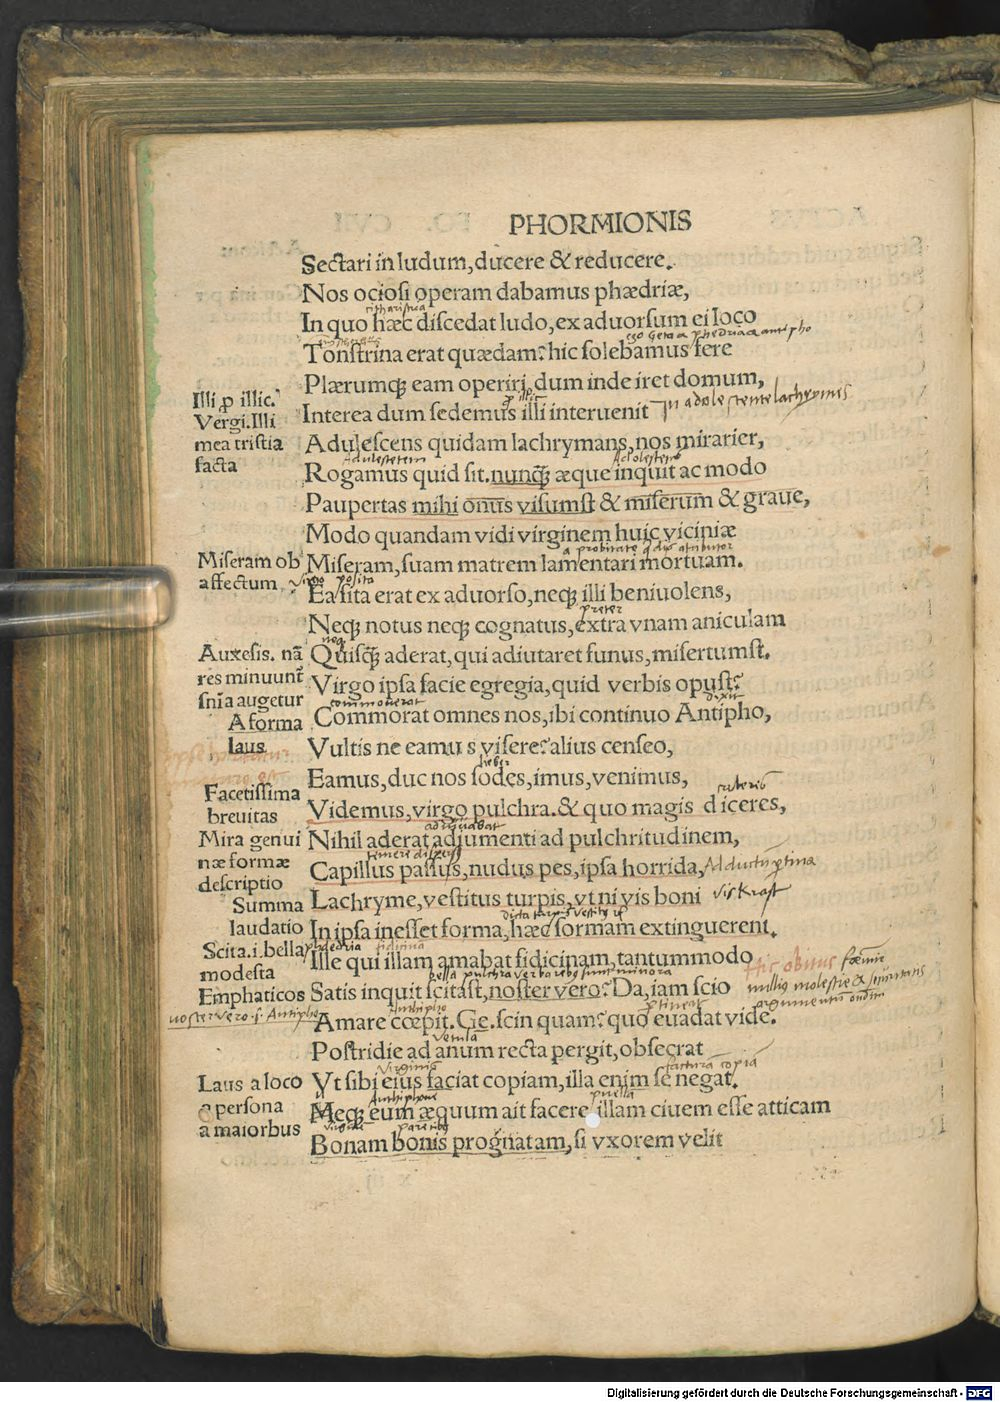 PHORMIONIS
Sectari in ludum, ducere & reducere.
Nos ociosi operam dabamus phædriæ,
citharistria
In quo hæc discedat ludo, ex aduorsum ei loco
ego Geta & phedria & antipho
Tonstrina erat quædam: hic solebamus fere
Plærumq; eam operiri, dum inde iret domum,
Illi p̱ illic.
Vergi. Illi
mea tristia
facta
Interea dum sedemus illi interuenit In adolescente lachrymes
Adulescens quidam lachrymans, nos mirarier,
Adulescetem Adolescens
Rogamus quid sit. nunq̃; æque inquit ac modo
Paupertas mihi onus visumst & miserum & graue,
Modo quandam vidi virginem huic viciniæ
Miseram ob
affectum
Miseram, suam matrem lamentari mortuam.
virgo posita
Ea sita erat ex aduorso, neq; illi beniuolens,
preter
Neq; notus neq; cognatus, extra vnam aniculam
Auxesis. nã
res minuunt̃
sñia augetur
A forma
laus
Quisq̃; aderat, qui adiutaret funus, misertumst.
Virgo ipsa facie egregia, quid verbis opust?
commouerat dixit
Commorat omnes nos, ibi continuo Antipho,
Vultis ne eamu s visere? alius censeo,
Eamus, duc nos sodes, imus, venimus,
Facetissima
breuitas
Videmus, virgo pulchra. & quo magis d iceres,
Mira genui
næ formæ
descriptio
Nihil aderat adiumenti ad pulchritudinem,
Capillus passus, nudus pes, ipsa horrida,
Summa
laudatio
Lachryme, vestitus turpis, vt ni vis boni vis Krafft
In ipsa inesset forma, hæc formam extinguerent.
Scita. i. bella
modesta
phedria fidicina
Ille qui illam amabat fidicinam, tantummodo
Hic obitus
bella pulchra
Emphaticos
noster vero .s. Antipho
Satis inquit scitast, noster vero? Da, iam scio
Antipho ptineat
Amare cœpit. Ge. scin quam? quo euadat vide.
Postridie ad anum recta pergit, obsecrat
vetula
Laus a loco
a persona
a maiorbus
virginis factura copiã
Vt sibi eius faciat copiam, illa enim se negat.
Anthiphone puella
Meq; eum æquum ait facere illam ciuem esse atticam
Bonam bonis prognatam, si vxorem velit
Digitalisierung gefördert durch die Deutsche Forschungsgemeinschaft - DFG